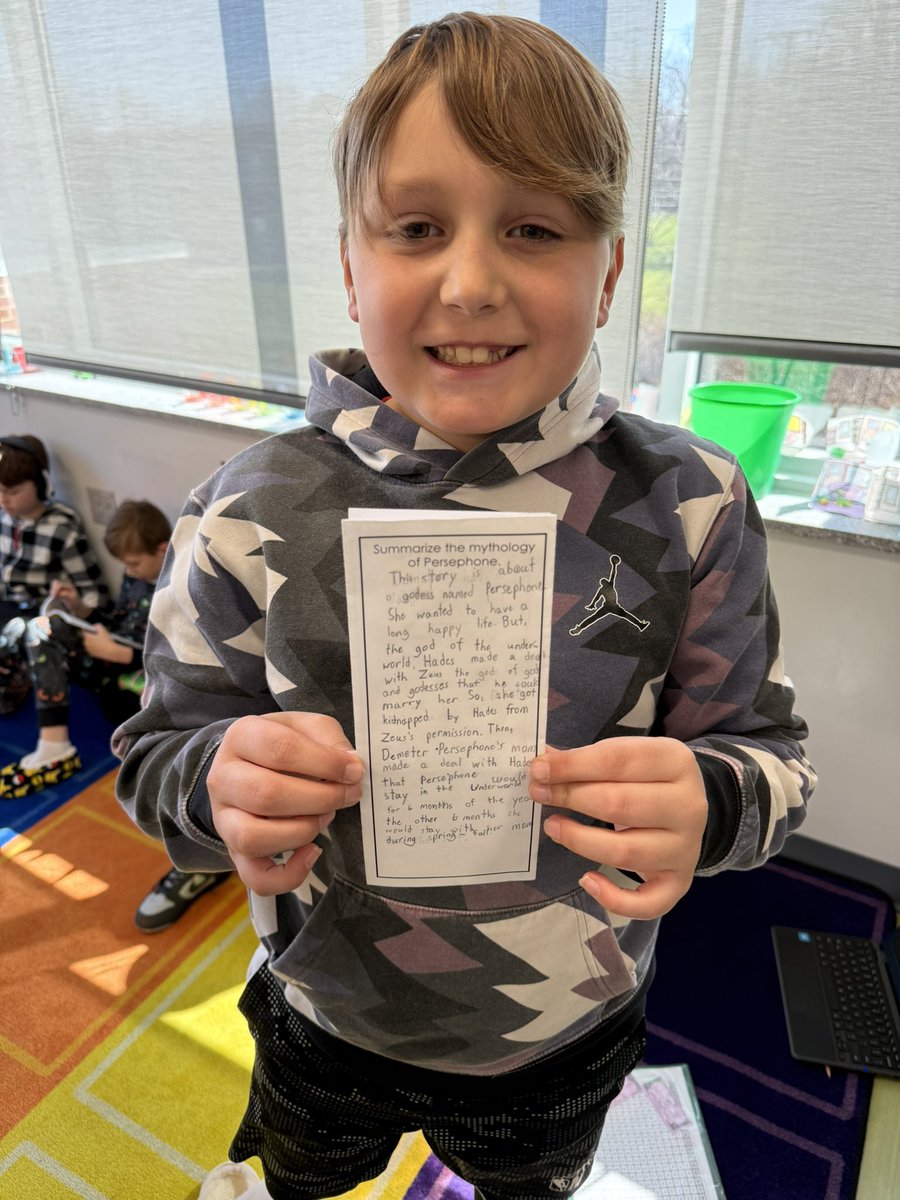 Summarize the mythology
of Persephone.
This story is about
a godess named Persephone
She wanted to have a
long happy life. But,
the god of the under-
world, Hades made a deal
with Zeus the god of god
and godesses that he could
marry her So, she got
kidnapped by Hades from
Zeus's permission. Then,
Demeter Persephone's mom
made a deal with Hades
that Persephone would
stay in the Underworld
for 6 months of the year
the other 6 months she
would stay with mom
during spring